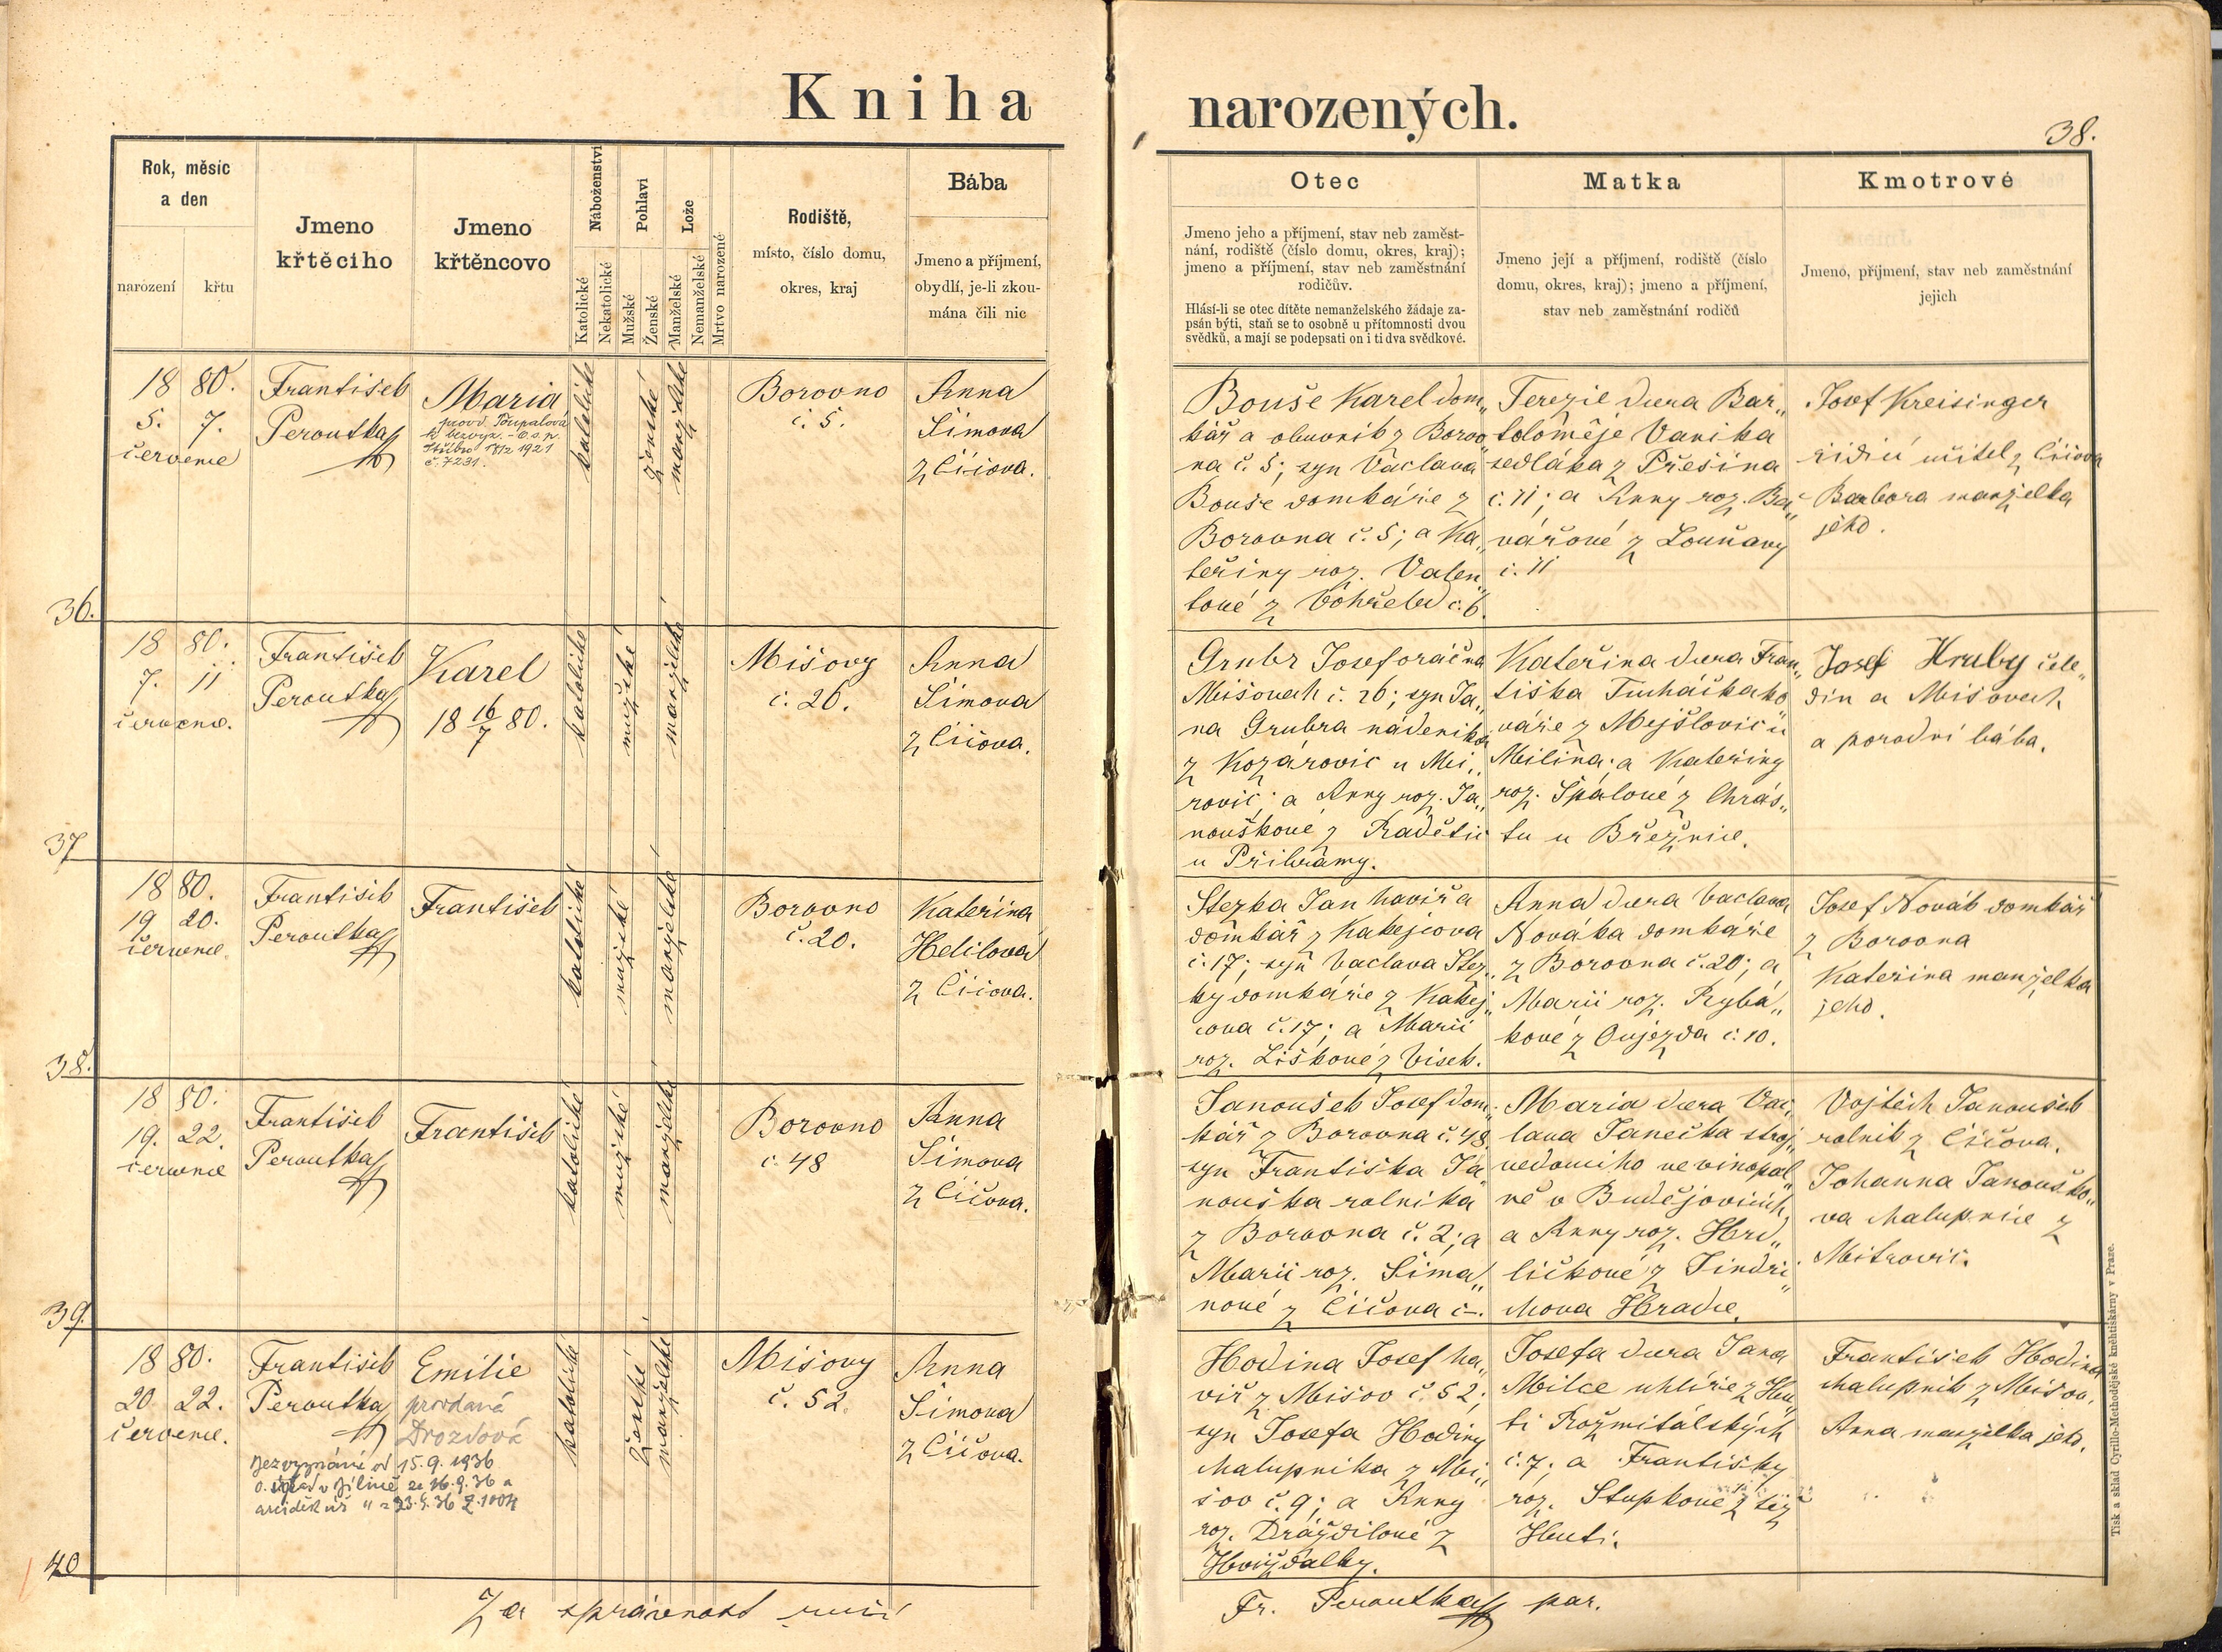 Kniha narozených.
38.
Rok, měsíc
a den
narození
křtu
Jmeno
křtěcího
Jmeno
křtěncovo
Náboženství
Katolické
Nekatolické
Pohlaví
Mužské
Ženské
Lože
Manželské
Nemanželské
Mrtvo narozené
Rodiště,
místo, číslo domu,
okres, kraj
Bába
Jmeno a příjmení,
obydlí, je-li zkou-
mána čili nic
Otec
Jmeno jeho a příjmení, stav neb zaměst-
nání, rodiště (číslo domu, okres, kraj);
jmeno a příjmení, stav neb zaměstnání
rodičův.
Hlásí-li se otec dítěte nemanželského žádaje za-
psán býti, staň se to osobně u přítomnosti dvou
svědků, a mají se podepsati on i ti dva svědkové.
Matka
Jmeno její a příjmení, rodiště (číslo
domu, okres, kraj); jmeno a příjmení,
stav neb zaměstnání rodičů
Kmotrové
Jmeno, příjmení, stav neb zaměstnání
jejich
36.
1880.
5. 7.
července
František
Peroutka
Maria
provd. Toupalová
k bezvyz. - O.s.p.
Stříbro 18/2 1921
č. 7231.
katolické
ženské
manželské
Borovno
č. 5.
Anna
Šimova
z Číčova.
Bouše Karel dom„
kář a obuvník z Borov
na č. 5; syn Václava
Bouše domkáře z
Borovna č. 5; a Ka„
teřiny roz. Valen„
tové z Vohřeled č. 6.
Terezie dcera Bar„
toloměje Vaníka
sedláka z Přešína
č. 11; a Anny roz. Ba„
vářové z Louňavy
č. 11
Josef Kreisinger
řídící učitel z Číčova
Barbora manželka
jeho.
37
1880.
7. 11
července.
František
Peroutka
Karel
18 16/7 80.
katolické
mužské
manželské
Mišovy
č. 26.
Anna
Šimova
z Číčova.
Grubr Josef oráč na
Mišovech č. 26; syn Ja„
na Grubra nádeníka
z Kozárovic u Mi„
rovic; a Anny roz. Ja„
nouškové z Radětic
u Příbramy.
Kateřina dcera Fran„
tiška Tucháčka ko
váře z Mejšlovic u
Milína; a Kateřiny
roz. Špalové z Chrás„
tu u Březnice.
Josef Hruby čele„
dín a Mišovech
a porodní bába.
38.
1880.
19 20.
července.
František
Peroutka
František
katolické
mužské
manželské
Borovno
č. 20.
Kateřina
Hetilova
z Číčova.
Stezka Jan havíř a
domkář z Kakejcova
č. 17; syn Vaclava Stez„
ky domkáře z Kakej„
cova č. 17; a Marii
roz. Liškové z Vísek.
Anna dcera Vaclava
Nováka domkáře
z Borovna č. 20; a
Marii roz. Rybá„
kové z Oujezda č. 10.
Josef Novák domkář
z Borovna
Kateřina manželka
jeho.
39.
1880.
19. 22.
července
František
Peroutka
František
katolické
mužské
manželské
Borovno
č. 48
Anna
Šimova
z Číčova.
Janoušek Josef dom„
kář z Borovna č. 48
syn Františka Ja„
nouška rolníka
z Borovna č. 2; a
Marii roz. Šima„
nové z Číčova č -.
Maria dcera Vác„
lava Janečka stroj„
vedoucího ve vinopal„
ně v Budějovicích,
a Anny roz. Hrd„
ličkové z Jindři„
chova Hradce.
Vojtěch Janoušek
rolník z Číčova.
Johanna Janouško„
va chalupnice z
Mitrovic.
40
1880.
20 22.
července.
František
Peroutka
Emilie
provdaná
Drozdová
Bezvyznání od 15.9.1936
katolické
ženské
manželské
Mišovy
č. 52.
Anna
Šimova
z Číčova.
Hodina Josef ha„
víř z Mišov č. 52;
syn Josefa Hodiny
chalupníka z Mi„
šov č. 9; a Anny
roz. Dráždilové z
Hvížďalky.
Josefa dcera Jana
Milce uhlíře z Hu„
ti Rožmitálských
č. 7; a Františky
roz. Stupkové z též
Huti.
František Hodina
chalupník z Mišov.
Anna manželka jeho.
Za správnost ručí
Fr. Peroutka par.
Tisk a sklad Cyrillo-Methodějské kněhtiskárny v Praze.